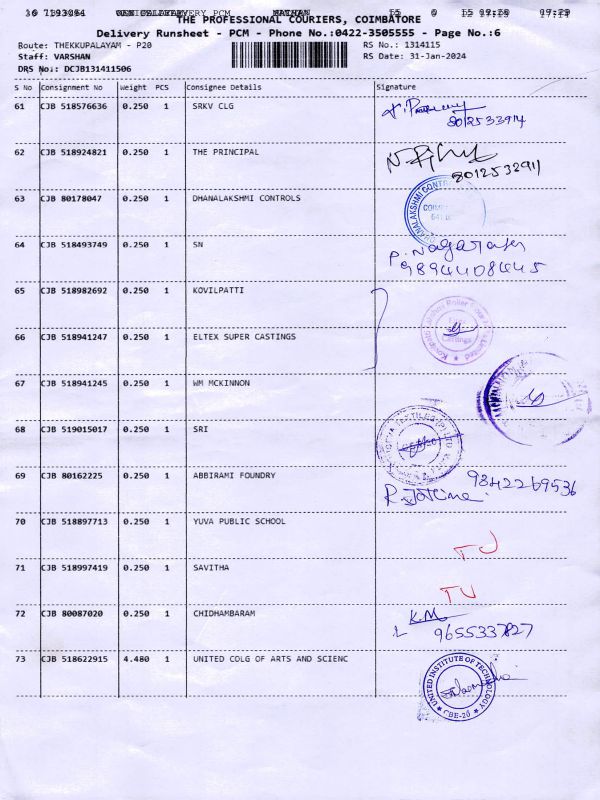 THE PROFESSIONAL COURIERS, COIMBATORE
Delivery Runsheet - PCM - Phone No.:0422-3505555 - Page No.:6
Route: THEKKUPALAYAM - P20
RS No.: 1314115
Staff: VARSHAN
RS Date: 31-Jan-2024
DRS No.: DCJB131411506
S No Consignment No Weight PCS Consignee Details Signature
61 CJB 518576636 0.250 1 SRKV CLG
8012533914
62 CJB 518924821 0.250 1 THE PRINCIPAL
8012532911
63 CJB 80178047 0.250 1 DHANALAKSHMI CONTROLS
DHANALAKSHMI CONTROLS
64 CJB 518493749 0.250 1 SN
P. Nagaraj
9894408445
65 CJB 518982692 0.250 1 KOVILPATTI
66 CJB 518941247 0.250 1 ELTEX SUPER CASTINGS
67 CJB 518941245 0.250 1 WM MCKINNON
68 CJB 519015017 0.250 1 SRI
69 CJB 80162225 0.250 1 ABBIRAMI FOUNDRY
9842269536
70 CJB 518897713 0.250 1 YUVA PUBLIC SCHOOL
TU
71 CJB 518997419 0.250 1 SAVITHA
TU
72 CJB 80087020 0.250 1 CHIDHAMBARAM
K.M
9655337827
73 CJB 518622915 4.480 1 UNITED COLG OF ARTS AND SCIENC
UNITED INSTITUTE OF TECHNOLOGY
CBE-20